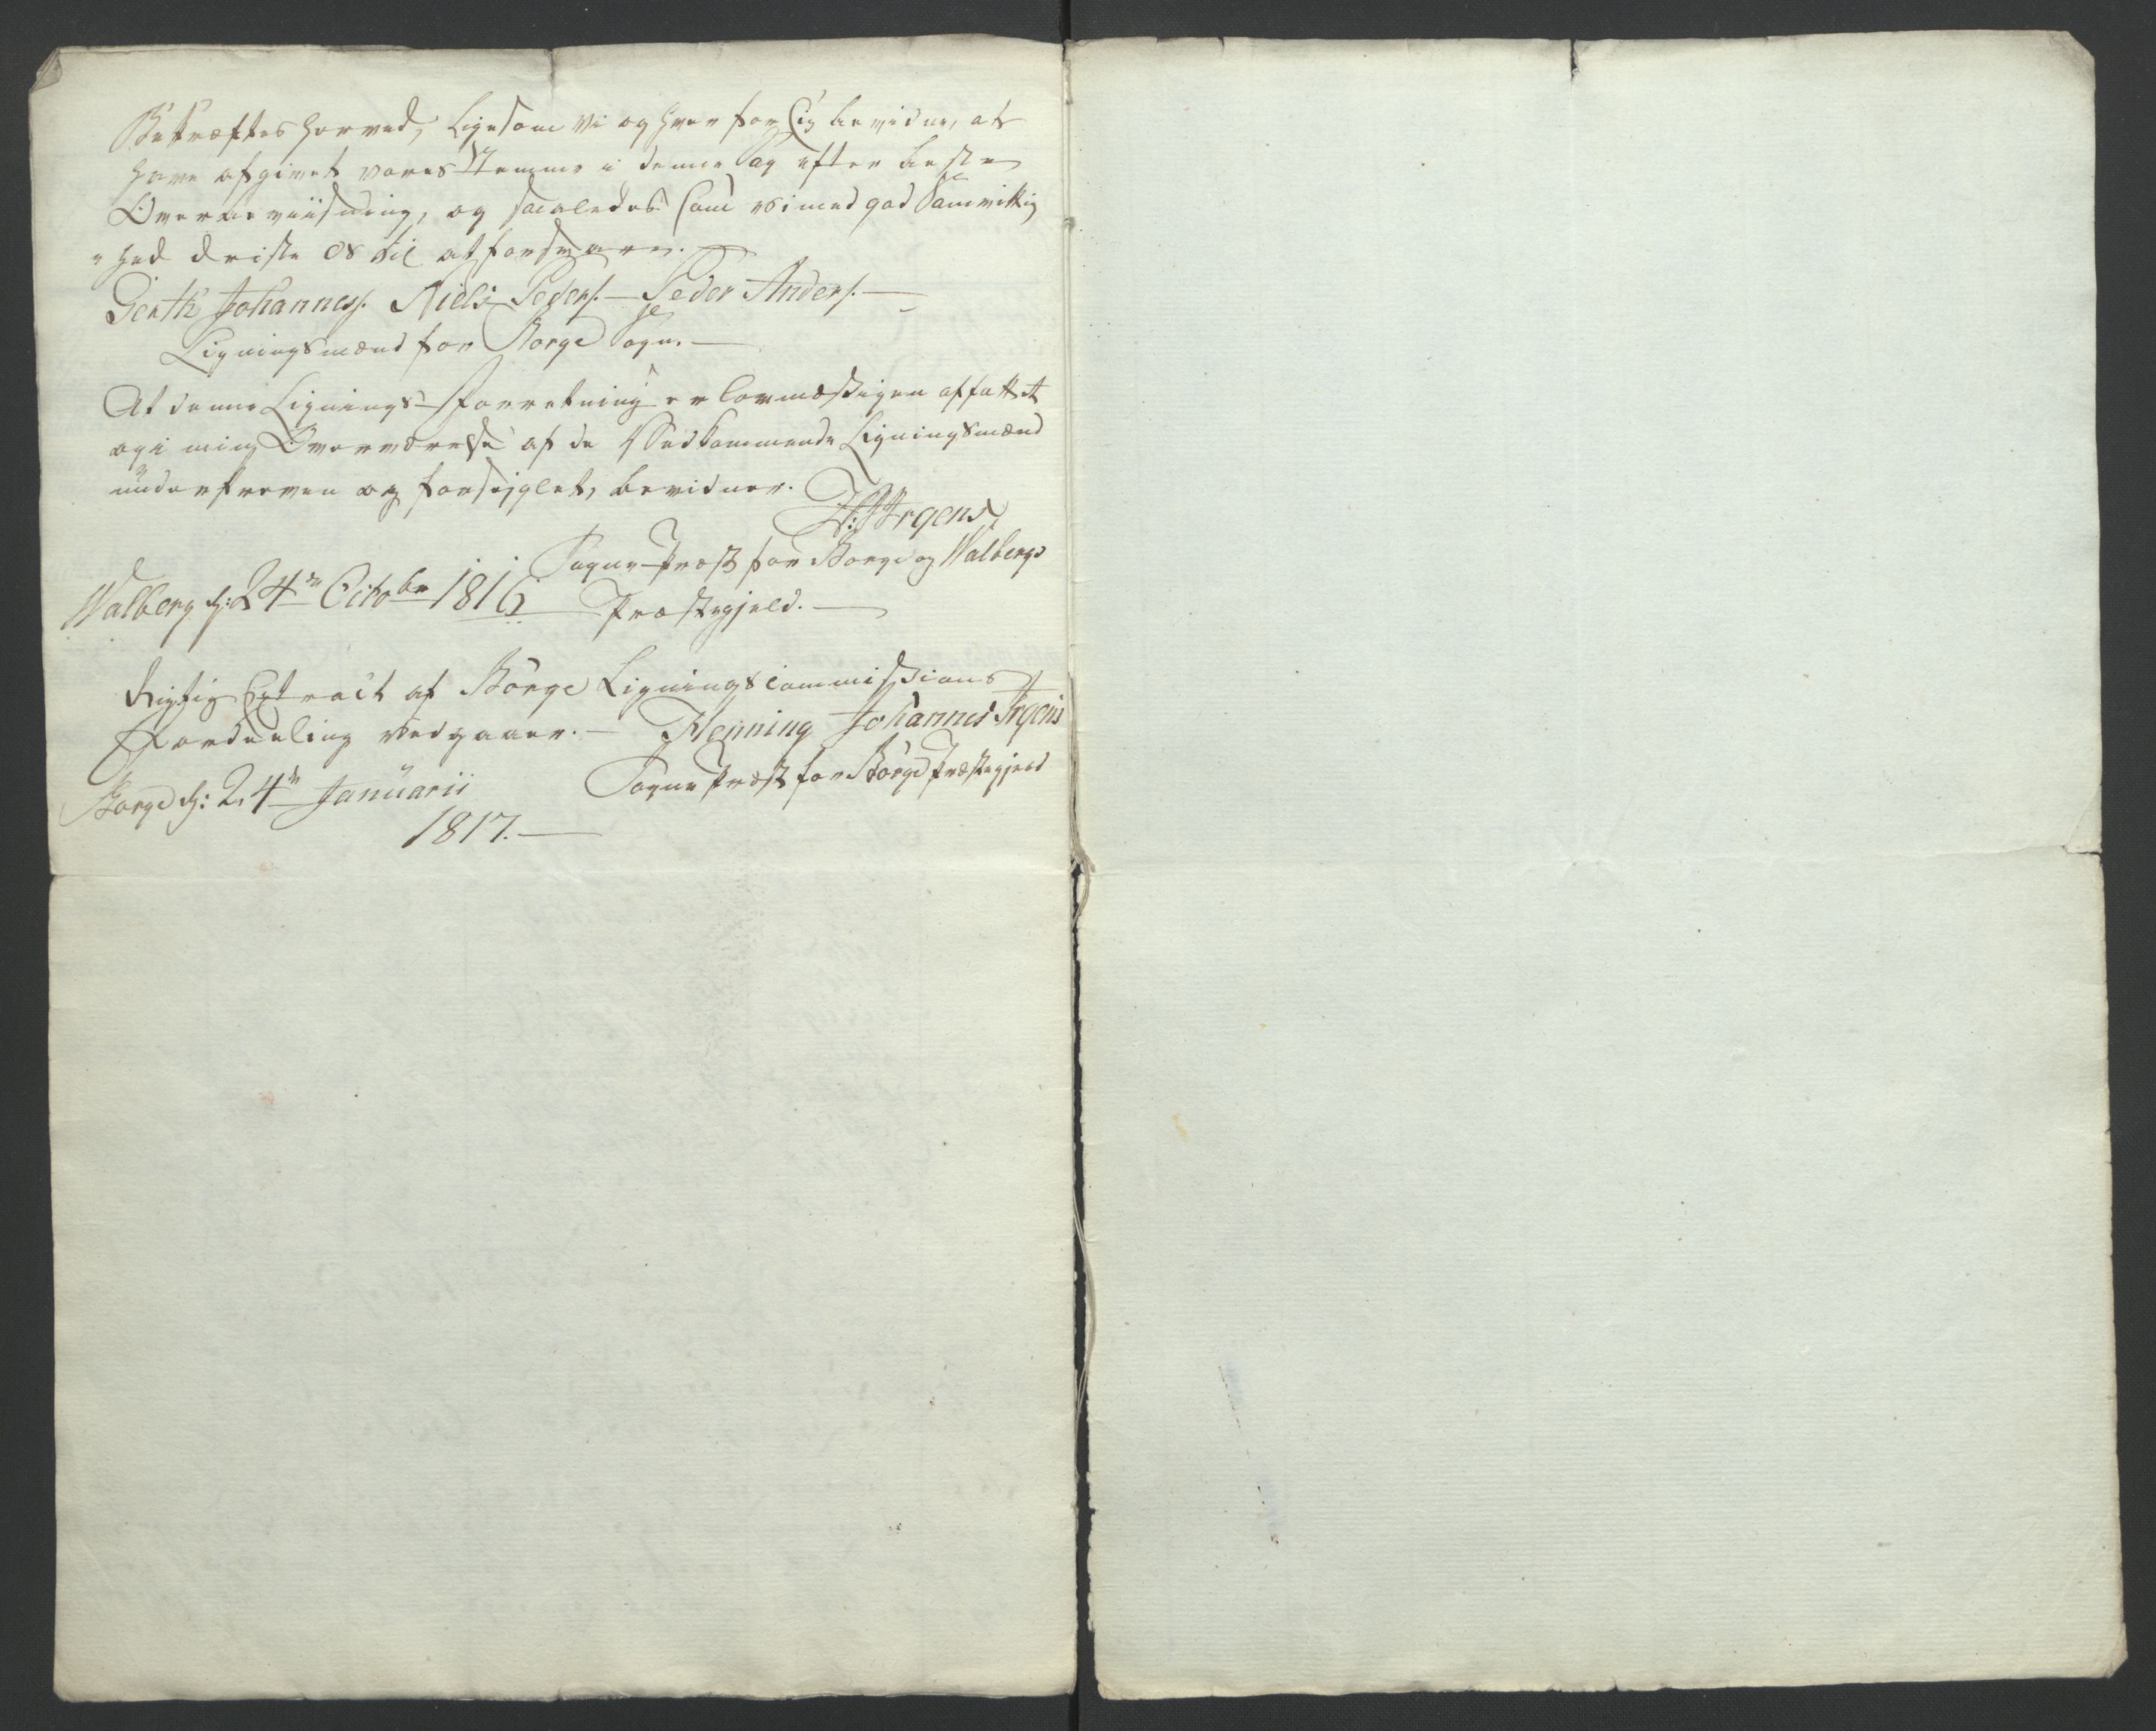 Bekræftes herved, ligesom vi og hver for Sig bevidne, at
have afgivet vores Stemme i denne Sag efter beste
Overbeviisning, og saaledes som vi med god Samvittig
"hed driste os til at forsvare.
Gerth Johanness. Niels Peders. Peder Anders.
Ligningsmænd for Borge Sogn.
At denne Lignings-Forretning er lovmæssigen affattet
og i min Overværelse af de Vedkommende Ligningsmænd
underskreven og forseiglet, bevidner.
H: J Irgens,
Sogne-Præst for Borge og Walbergs
Walberg d: 24de Octobr 1816 Præstegjeld.
Rigtig Extract af Borge Ligningscommissions
Fordeeling vedgaaer. Henning Johannes Irgens
Sogne Præst for Borge Præstegjeld
Borge d: 24de Januarii
1817.